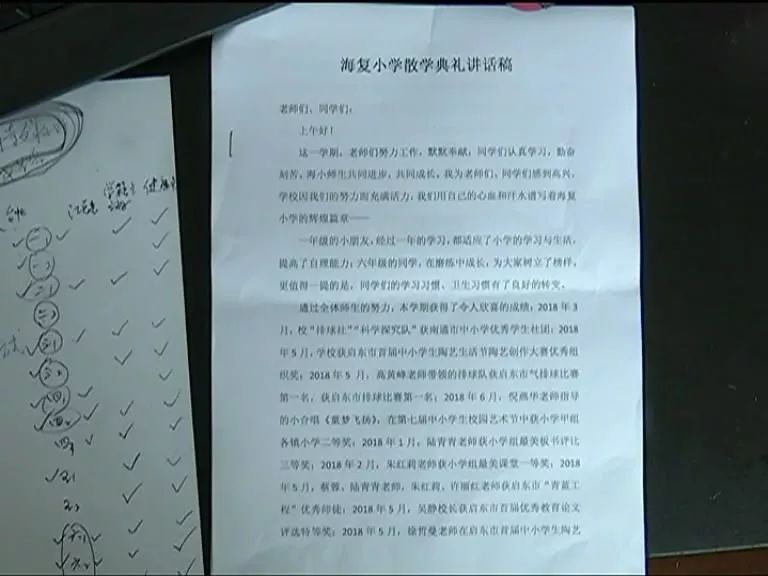 海复小学散学典礼讲话稿
老师们、同学们：
上午好！
这一学期，老师们努力工作，默默奉献；同学们认真学习，勤奋
刻苦。海小师生共同进步，共同成长。我为老师们、同学们感到高兴，
学校因我们的努力而充满活力，我们用自己的心血和汗水谱写着海复
小学的辉煌篇章——
一年级的小朋友，经过一年的学习，都适应了小学的学习与生活，
提高了自理能力；六年级的同学，在磨练中成长，为大家树立了榜样。
更值得一提的是，同学们的学习习惯、卫生习惯有了良好的转变。
通过全体师生的努力，本学期获得了令人欣喜的成绩：2018 年 3
月，校“排球社”“科学探究队”获南通市中小学优秀学生社团；2018
年 5 月，学校获启东市首届中小学生陶艺生活节陶艺创作大赛优秀组
织奖；2018 年 5 月，高黄峰老师带领的排球队获启东市气排球比赛
第一名，获启东市排球比赛第一名；2018 年 6 月，倪燕华老师指导
的小合唱《童梦飞扬》，在第七届中小学生校园艺术节中获小学甲组
各镇小学二等奖；2018 年 1 月，陆青青老师获小学组最美板书评比
三等奖；2018 年 2 月，朱红莉老师获小学组最美课堂一等奖；2018
年 5 月，蔡蓉、陆青青老师，朱红莉、许丽红老师获启东市“青蓝工
程”优秀师徒；2018 年 5 月，吴静校长获启东市首届优秀教育论文
评选特等奖；2018 年 5 月，徐哲曼老师在启东市首届中小学生陶艺